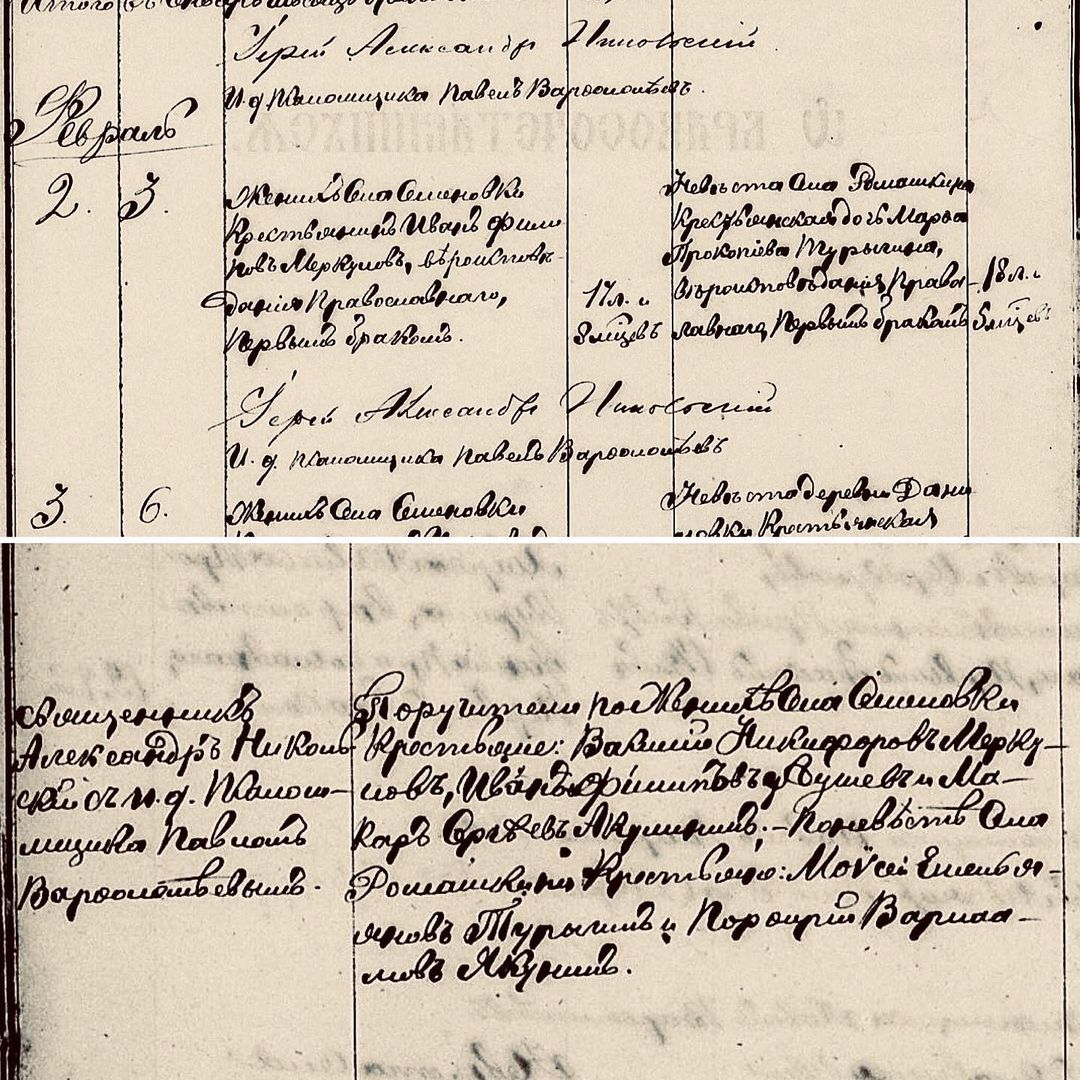 Іерей Александръ Никольскій
И. д. Псаломщика Павелъ Варѳоломѣевъ.
Февраль
2. 3.
Женихъ Села Семеновки
Крестьянинъ Иванъ Филип
повъ Меркуловъ, вѣроисповѣ-
данія Православнаго,
Первымъ бракомъ.
17 л. и
8 мѣсцевъ
Невѣста Села Ромашкина
Крестьянская дочь Марѳа
Прокопіева Турыгина,
вѣроисповѣданія Право-
лавнаго, Первымъ бракомъ
18 л. и
5 мѣсцевъ
Іерей Александръ Никольскій
И. д. Псаломщика Павелъ Варѳоломѣевъ
3. 6.
Женихъ Села Семеновки
Невѣста деревни Дани
ловки Крестьянская
Священникъ
Александръ Николь-
скій съ и. д. Псалом-
щика Павломъ
Варѳоломѣевымъ.
Поручители по Женихѣ Села Семеновки
Крестьяне: Василій Никифоровъ Мерку-
ловъ, Иванъ Филиповъ и Ма-
каръ Сергѣевъ Акулининъ. - По невѣстѣ Села
Ромашкина Крестьяне: Моѵсей Емелья-
новъ Турыгинъ и Порфирій Варлаа-
мовъ Якунинъ.